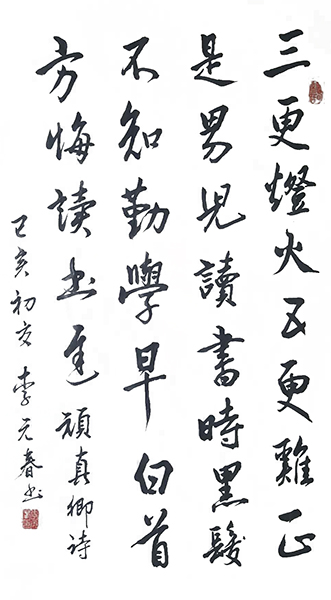 三更燈火五更雞正
是男兒讀書時黑髮
不知勤學早白首
方悔讀书遲顏真卿詩
己亥初夏李元春书